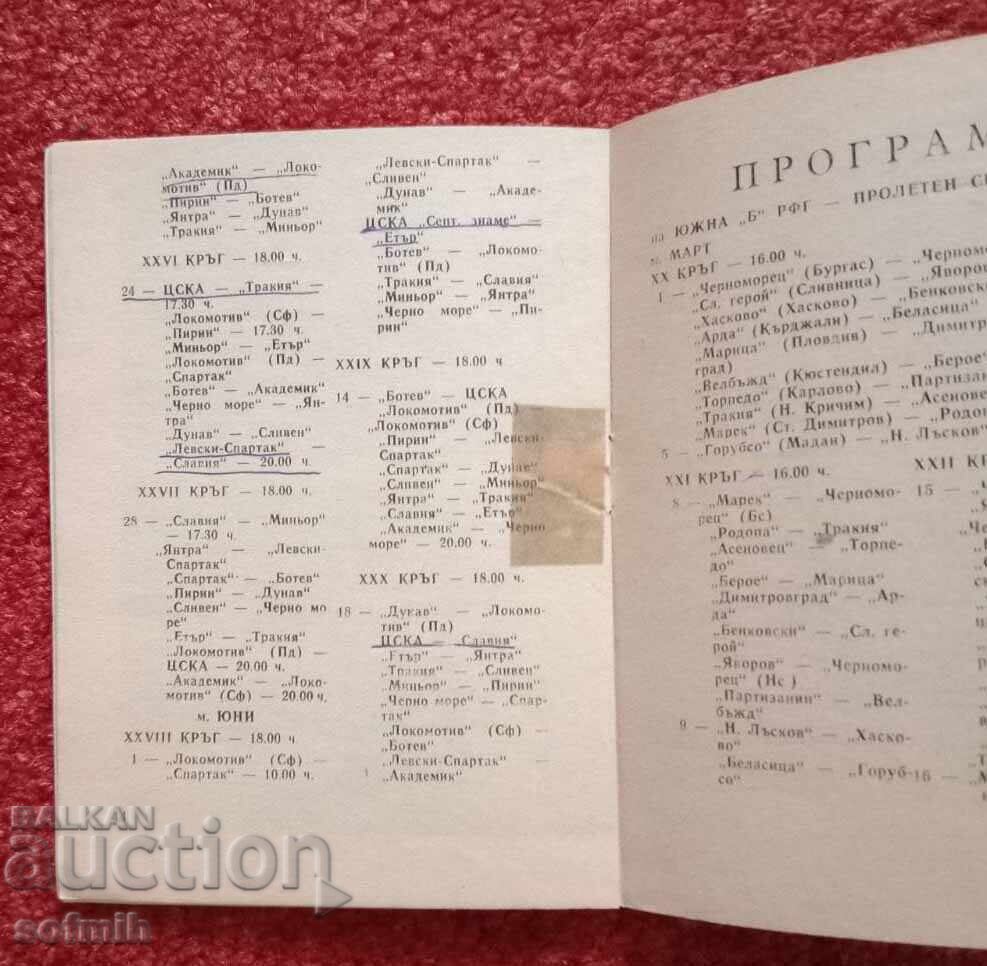 „Академик“ — „Локо-
мотив“ (Пд)
„Пирин“ — „Ботев“
„Янтра“ — „Дунав“
„Тракия“ — „Миньор“
XXVI КРЪГ — 18.00 ч.
24 — ЦСКА — „Тракия“ —
17.30 ч.
„Локомотив“ (Сф) —
„Пирин“ — 17.30 ч.
„Миньор“ — „Етър“
„Локомотив“ (Пд) —
„Спартак“
„Ботев“ — „Академик“
„Черно море“ — „Ян-
тра“
„Дунав“ — „Сливен“
„Левски-Спартак“ —
„Славия“ — 20.00 ч.
XXVII КРЪГ — 18.00 ч.
28 — „Славия“ — „Миньор“
— 17.30 ч.
„Янтра“ — „Левски-
Спартак“
„Спартак“ — „Ботев“
„Пирин“ — „Дунав“
„Сливен“ — „Черно мо
ре“
„Етър“ — „Тракия“
„Локомотив“ (Пд) —
ЦСКА — 20.00 ч.
„Академик“ — „Локо-
мотив“ (Сф) — 20.00 ч.
м. ЮНИ
XXVIII КРЪГ — 18.00 ч.
1 — „Локомотив“ (Сф) —
„Спартак“ — 10.00 ч.
„Левски-Спартак“ —
„Сливен“
„Дунав“ — „Акаде-
мик“
ЦСКА „Септ. знаме“ —
„Етър“
„Ботев“ — „Локомо-
тив“ (Пд)
„Тракия“ — „Славия“
„Миньор“ — „Янтра“
„Черно море“ — „Пи-
рин“
XXIX КРЪГ — 18.00 ч.
14 — „Ботев“ — ЦСКА
„Локомотив“ (Пд) —
„Локомотив“ (Сф)
„Пирин“ — „Левски-
Спартак“
„Спартак“ — „Дунав“
„Сливен“ — „Миньор“
„Янтра“ — „Тракия“
„Славия“ — „Етър“
„Академик“ — „Черно
море“ — 20.00 ч.
XXX КРЪГ — 18.00 ч.
18 — „Дунав“ — „Локомо-
тив“ (Пд)
ЦСКА — „Славия“
„Етър“ — „Янтра“
„Тракия“ — „Сливен“
„Миньор“ — „Пирин“
„Черно море“ — „Спар-
так“
„Локомотив“ (Сф) —
„Ботев“
„Левски-Спартак“ —
„Академик“
ПРОГРАМ
на ЮЖНА „Б“ РФГ — ПРОЛЕТЕН
м. МАРТ
XX КРЪГ — 16.00 ч.
1 — „Черноморец“ (Бургас) — „Черно
„Сл. герой“ (Сливница) — „Яворо
„Хасково“ (Хасково) — „Бенковск
„Арда“ (Кърджали) — „Беласица“
„Марица“ (Пловдив) — „Димитр
град)
„Велбъжд“ (Кюстендил) — „Берое“
„Торпедо“ (Карлово) — „Партизан
„Тракия“ (Н. Кричим) — „Асенове
„Марек“ (Ст. Димитров) — „Родо
5 — „Горубсо“ (Мадан) — „Н. Лъсков“
XXI КРЪГ — 16.00 ч.
8 — „Марек“ — „Черномо-
рец“ (Бс)
„Родопа“ — „Тракия“
„Асеновец“ — „Торпе-
до“
„Берое“ — „Марица“
„Димитровград“ — „Ар-
да“
„Бенковски“ — „Сл. ге-
рой“
„Яворов“ — „Черномо-
рец“ (Нс)
„Партизанин“ — „Вел-
бъжд“
9 — „Н. Лъсков“ — „Хаско-
во“
„Беласица“ — „Горуб-
со“
XXII К
15 —
16 —
BALKAN
auction
sofmih